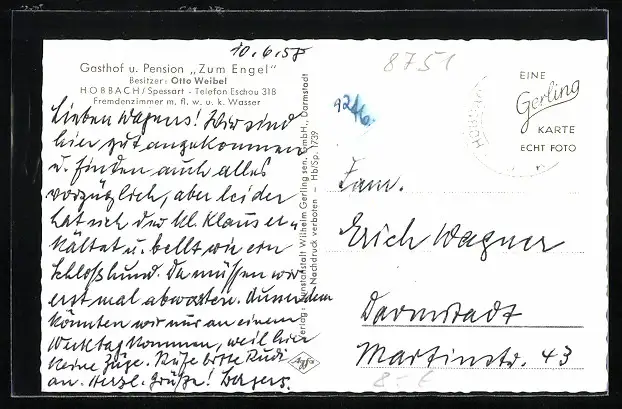 10.6.57
Gasthof u. Pension „Zum Engel"
Besitzer: Otto Weibel
HOBBACH/Spessart - Telefon Eschau 318
Fremdenzimmer m. fl. w. u. k. Wasser
Lieben Wagners! Wir sind
hier gut angekommen
u. finden auch alles
vorzüglich, aber leider
hat sich der kl. Klaus er-
kältet u. bellt wie ein
Schloßhund. Da müssen wir
erst mal abwarten. Ausserdem
könnten wir nur an einem
Werktag kommen, weil hier
keine Züge. Rufe bitte Rudi
an. Herzl. Grüße! Bergers.
Verlag: Kunstanstalt Wilhelm Gerling sen. GmbH., Darmstadt
Nachdruck verboten — Hb/Sp. 1739
Agfa
8751
EINE
Gerling
KARTE
ECHT FOTO
Fam.
Erich Wagner
Darmstadt
Martinstr. 43
8.- €